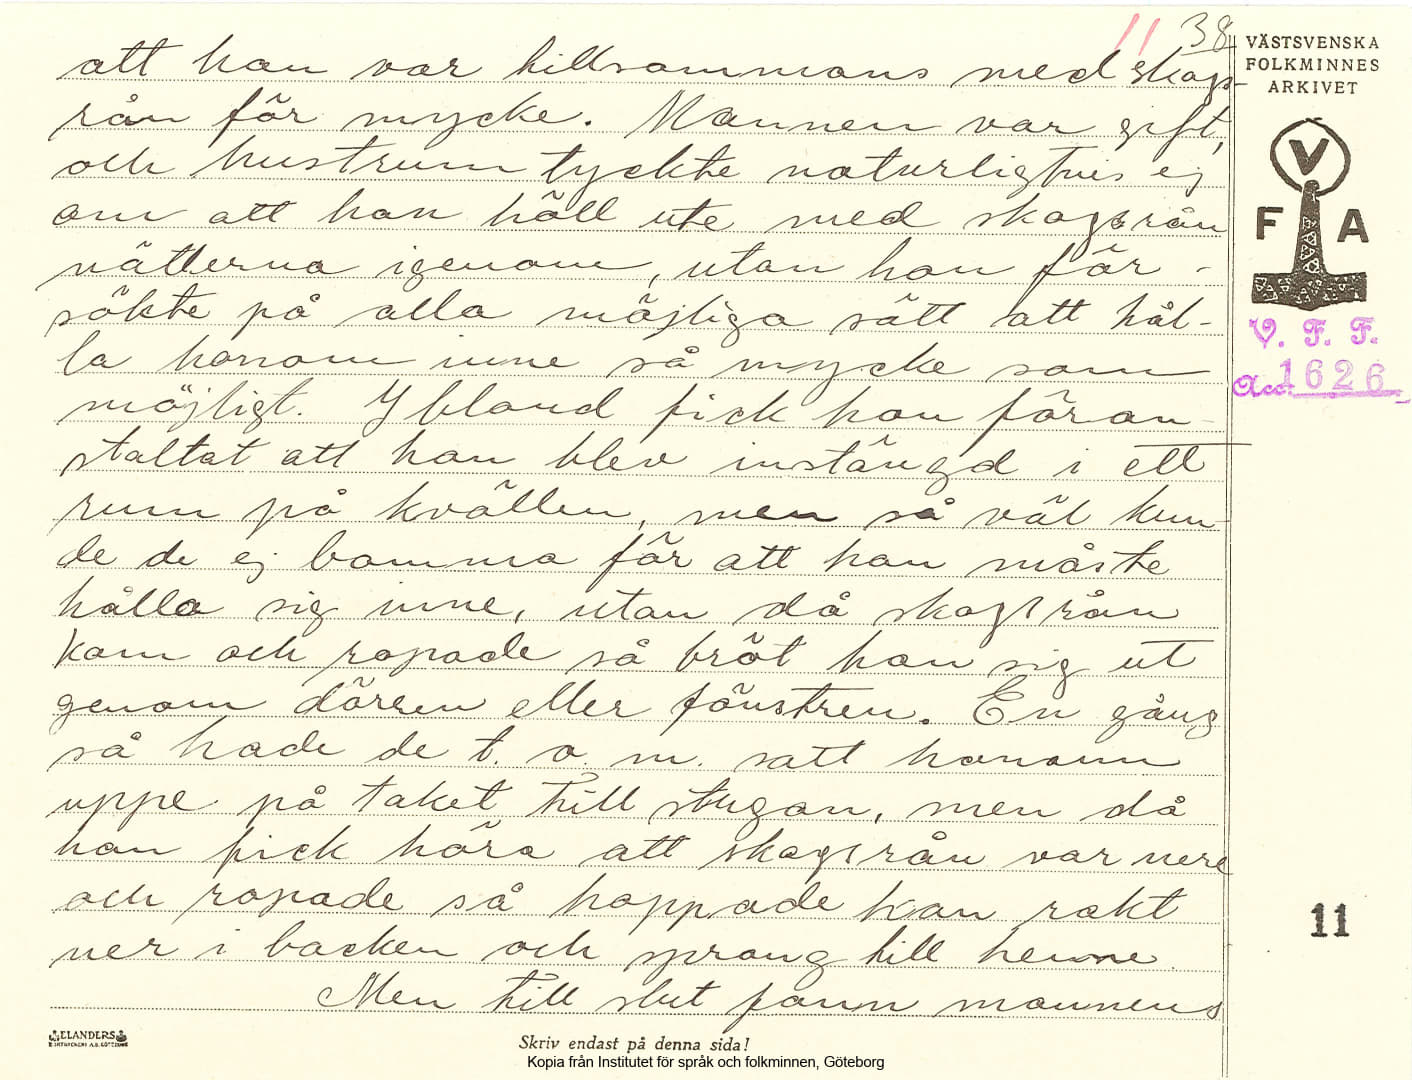 11 38
VÄSTSVENSKA
FOLKMINNES
ARKIVET
att han var tillsammans med skogs-
rån för mycke. Mannen var gift,
och hustrun tyckte naturligtvis ej
om att han höll ute med skogsrån
nätterna igenom, utan hon för-
sökte på alla möjliga sätt att hål-
la honom inne så mycke som
möjligt. Ibland fick hon föran-
staltat att han blev instängd i ett
rum på kvällen, men så väl kun-
de de ej bomma för att han måste
hålla sig inne, utan då skogsrån
kom och ropade så bröt han sig ut
genom dörren eller fönstren. En gång
så hade de t. o. m. satt honom
uppe på taket till stugan, men då
han fick höra att skogsrån var nere
och ropade så hoppade han rakt
ner i backen och sprang till henne.
Men till slut fann mannens
V
F A
V. F. F.
Acc. 1626
11
ELANDERS
Skriv endast på denna sida!
Kopia från Institutet för språk och folkminnen, Göteborg